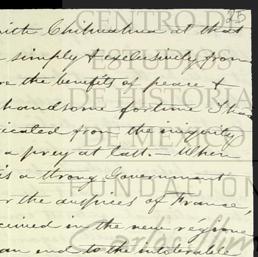 25
with Chihuahua at that
simply & exclusively from
the benefits of peace &
handsome fortune I ha
from the iniquity
a prey at last. — When
is a strong Government
the auspices of France,
in the new régime
an end to the intolerable
CENTRO DE
ESTUDIOS
DE HISTORIA
DE MÉXICO
FUNDACIÓN
Carlos Slim